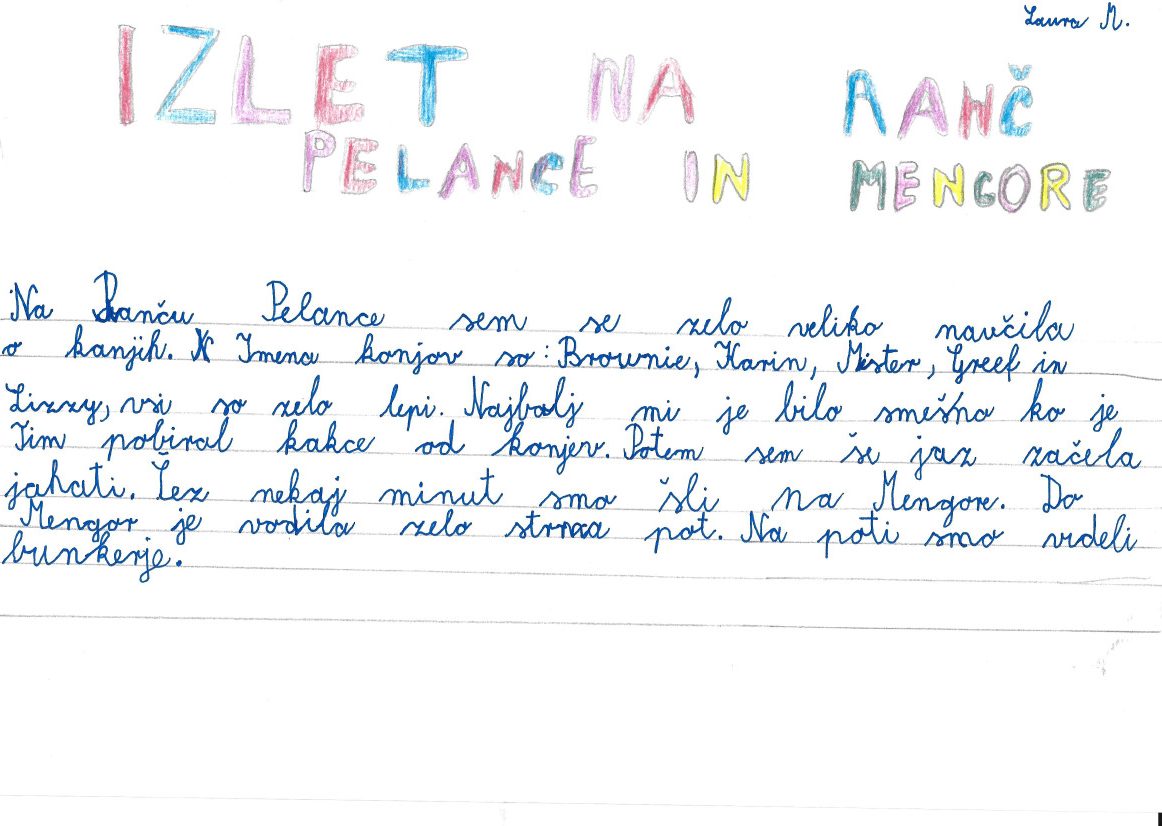 Laura M.
IZLET NA RANČ
PELANCE IN MENGORE
Na Ranču Pelance sem se zelo veliko naučila
o kanjih. Imena konjov so: Brownie, Karin, Mister, Greef in
Lizzy, vsi so zelo lepi. Najbolj mi je bilo smešno ko je
Tim pobiral kakce od konjev. Potem sem še jaz začela
jahati. Čez nekaj minut smo šli na Mengore. Do
Mengor je vodila zelo strma pot. Na poti smo videli
bunkerje.